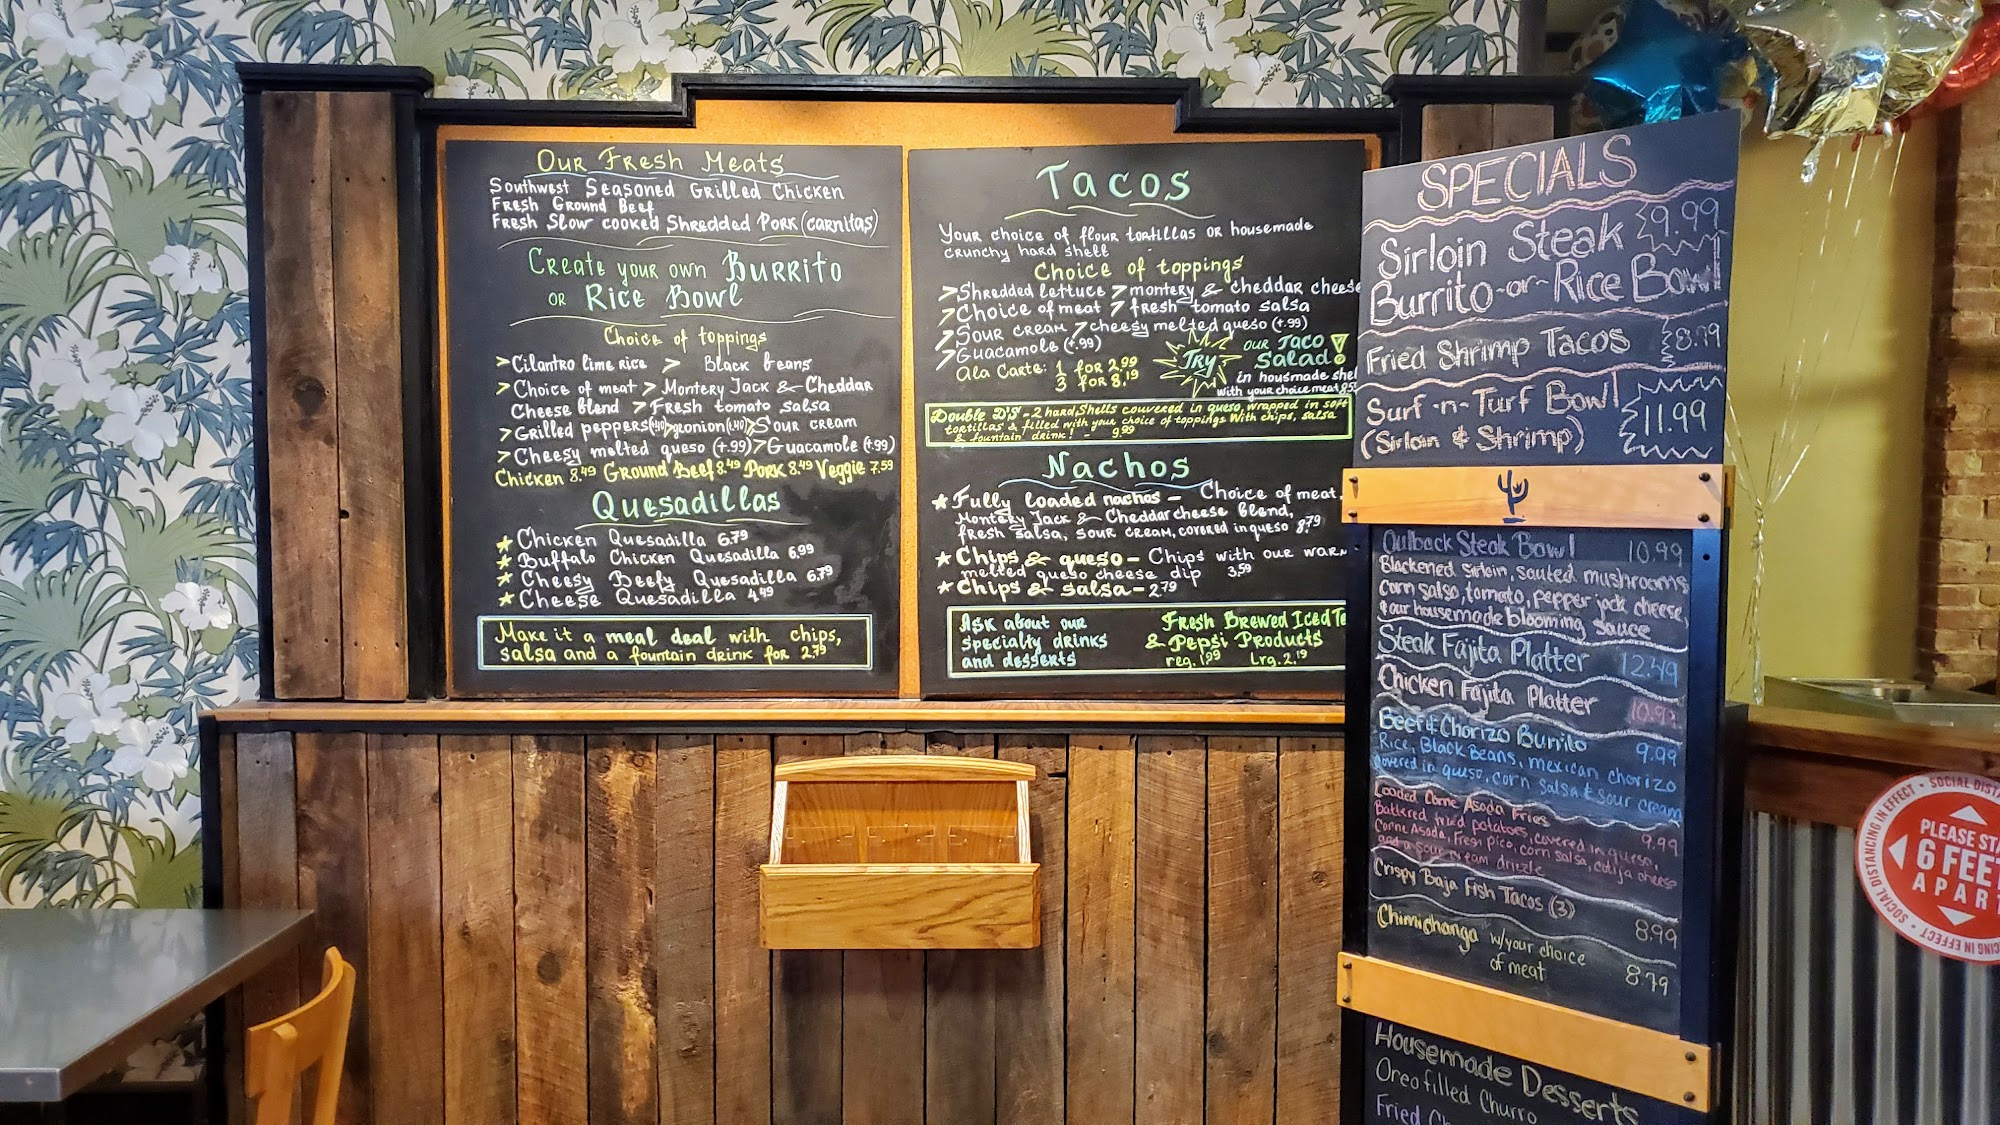 Our Fresh Meats
Southwest Seasoned Grilled Chicken
Fresh Ground Beef
Fresh Slow cooked Shredded Pork (carnitas)
Create your own Burrito
or Rice Bowl
Choice of toppings
> Cilantro lime rice > Black beans
> Choice of meat > Montery Jack & Cheddar
Cheese blend > Fresh tomato salsa
> Grilled peppers(.40)>onion(.40)>Sour cream
> Cheesy melted queso (+.99)>Guacamole (+.99)
Chicken 8.49 Ground Beef 8.49 Pork 8.49 Veggie 7.59
Quesadillas
★ Chicken Quesadilla 6.79
★ Buffalo Chicken Quesadilla 6.99
★ Cheesy Beefy Quesadilla 6.79
★ Cheese Quesadilla 4.49
Make it a meal deal with chips,
salsa and a fountain drink for 2.79
Tacos
Your choice of flour tortillas or housemade
crunchy hard shell
Choice of toppings
>Shredded lettuce >montery & cheddar cheese
>Choice of meat > fresh tomato salsa
>Sour cream >cheesy melted queso (+.99)
>Guacamole (+.99)
Ala Carte: 1 for 2.99
3 for 8.19
TRY
our Taco
Salad!
in housmade shel
with your choice meat
Double D's - 2 hard Shells couvered in queso, wrapped in soft
tortillas & filled with your choice of toppings With chips, salsa
& fountain drink! - 9.99
Nachos
★ Fully loaded nachos - Choice of meat,
Montery Jack & Cheddar cheese blend,
fresh salsa, sour cream, covered in queso 8.79
★ Chips & queso - Chips with our warm
melted queso cheese dip 3.59
★ Chips & salsa - 2.79
Ask about our
specialty drinks
and desserts
Fresh Brewed Iced Te
& Pepsi Products
reg. 1.99 Lrg. 2.19
SPECIALS
Sirloin Steak 9.99
Burrito -or- Rice Bowl
Fried Shrimp Tacos 8.99
Surf -n- Turf Bowl
(Sirloin & Shrimp) 11.99
Outback Steak Bowl 10.99
Blackened sirloin, sauted mushrooms,
corn salsa, tomato, pepper jack cheese,
& our housemade blooming sauce
Steak Fajita Platter 12.49
Chicken Fajita Platter 10.99
Beef & Chorizo Burrito 9.99
Rice, Black Beans, mexican chorizo
covered in queso, corn salsa & sour cream
Loaded Carne Asada Fries 9.99
Battered fried potatoes, covered in queso,
Carne Asada, Fresh pico, corn salsa, cotija cheese
and a sour cream drizzle
Crispy Baja Fish Tacos (3) 8.99
Chimichanga w/your choice
of meat 8.79
Housemade Desserts
Oreo filled Churro
Fried
SOCIAL DISTANCING IN EFFECT • SOCIAL DISTA
PLEASE STA
6 FEET
APART